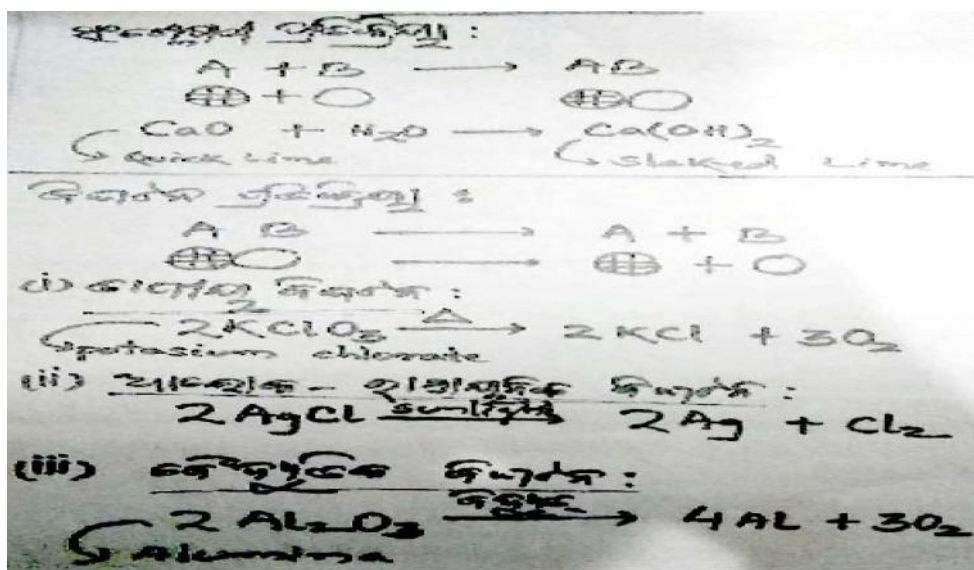 ସଂଯୋଗ ପ୍ରତିକ୍ରିୟା :
A + B → AB
+
CaO + H₂O → Ca(OH)₂
Quick Lime Slaked Lime
ବିଘଟନ ପ୍ରତିକ୍ରିୟା :
A B → A + B
→ +
(i) ତାପୀୟ ବିଘଟନ :
2KClO₃ △→ 2KCl + 3O₂
potasium chlorate
(ii) ଆଲୋକ - ରାସାୟନିକ ବିଘଟନ :
2AgCl sunlight→ 2Ag + Cl₂
(iii) ବୈଦ୍ୟୁତିକ ବିଘଟନ :
2 Al₂O₃ ବିଦ୍ୟୁତ→ 4Al + 3O₂
Alumina